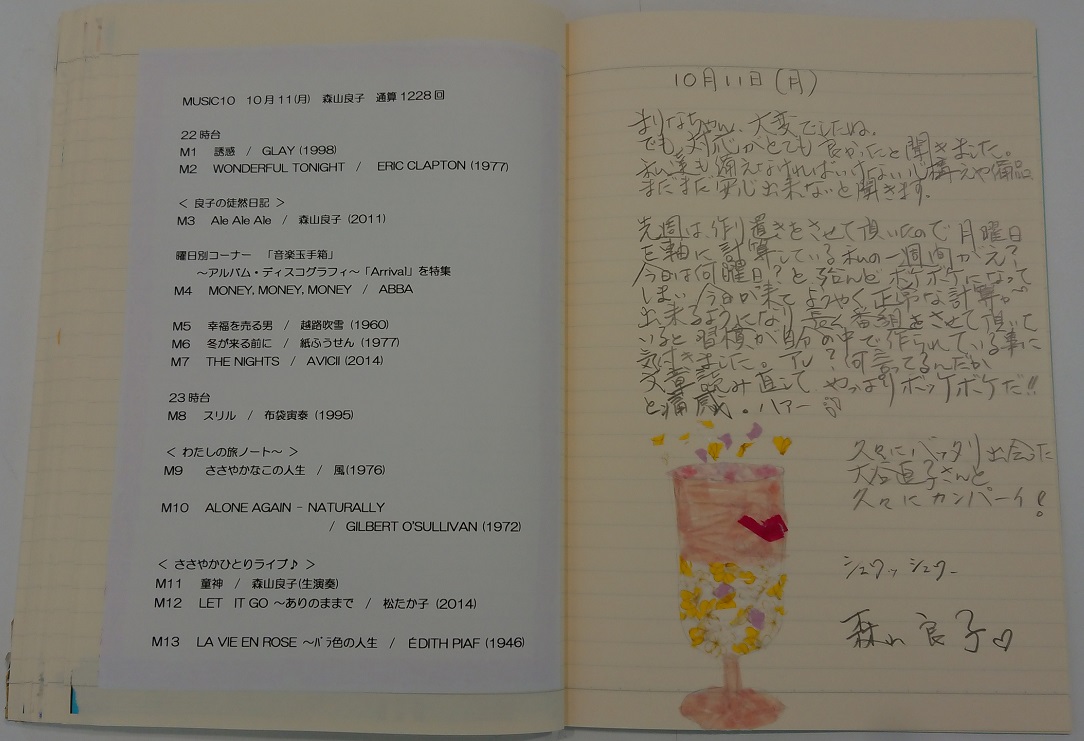 MUSIC10　10月11(月)　森山良子　通算1228回
22時台
M1　誘惑　/　GLAY (1998)
M2　WONDERFUL TONIGHT　/　ERIC CLAPTON (1977)
＜ 良子の徒然日記 ＞
M3　Ale Ale Ale　/　森山良子 (2011)
曜日別コーナー　「音楽玉手箱」
～アルバム・ディスコグラフィ～「Arrival」を特集
M4　MONEY, MONEY, MONEY　/　ABBA
M5　幸福を売る男　/　越路吹雪 (1960)
M6　冬が来る前に　/　紙ふうせん (1977)
M7　THE NIGHTS　/　AVICII (2014)
23時台
M8　スリル　/　布袋寅泰 (1995)
＜ わたしの旅ノート～ ＞
M9　ささやかなこの人生　/　風(1976)
M10　ALONE AGAIN － NATURALLY
/　GILBERT O'SULLIVAN (1972)
＜ ささやかひとりライブ♪ ＞
M11　童神　/　森山良子(生演奏)
M12　LET　IT GO ～ありのままで　/　松たか子 (2014)
M13　LA VIE EN ROSE ～ﾊﾞﾗ色の人生　/　ÉDITH PIAF (1946)
10月11日(月)
まりなちゃん、大変でしたね。
でも、対応がとても良かったと聞きました。
私達も備えなければいけない心構えや備品
まだまだ安心出来ないと聞きます。
先週は、作り置きをさせて頂いたので月曜日
を軸に計算している私の一週間が、え?
今日は何曜日?と殆んどボケボケになって
しまい、今日が来てようやく正常な計算が
出来るようになり、長く番組をさせて頂いて
いると習慣が自分の中で作られている事に
気付きました。アレ?何言ってるんだか
文章読み直して、やっぱりボッケボケだ!!
と痛感。ハァー
久々にバッタリ出会った
大谷直子さんと
久々にカンパーイ!
シュワッシュワー
森山良子♡